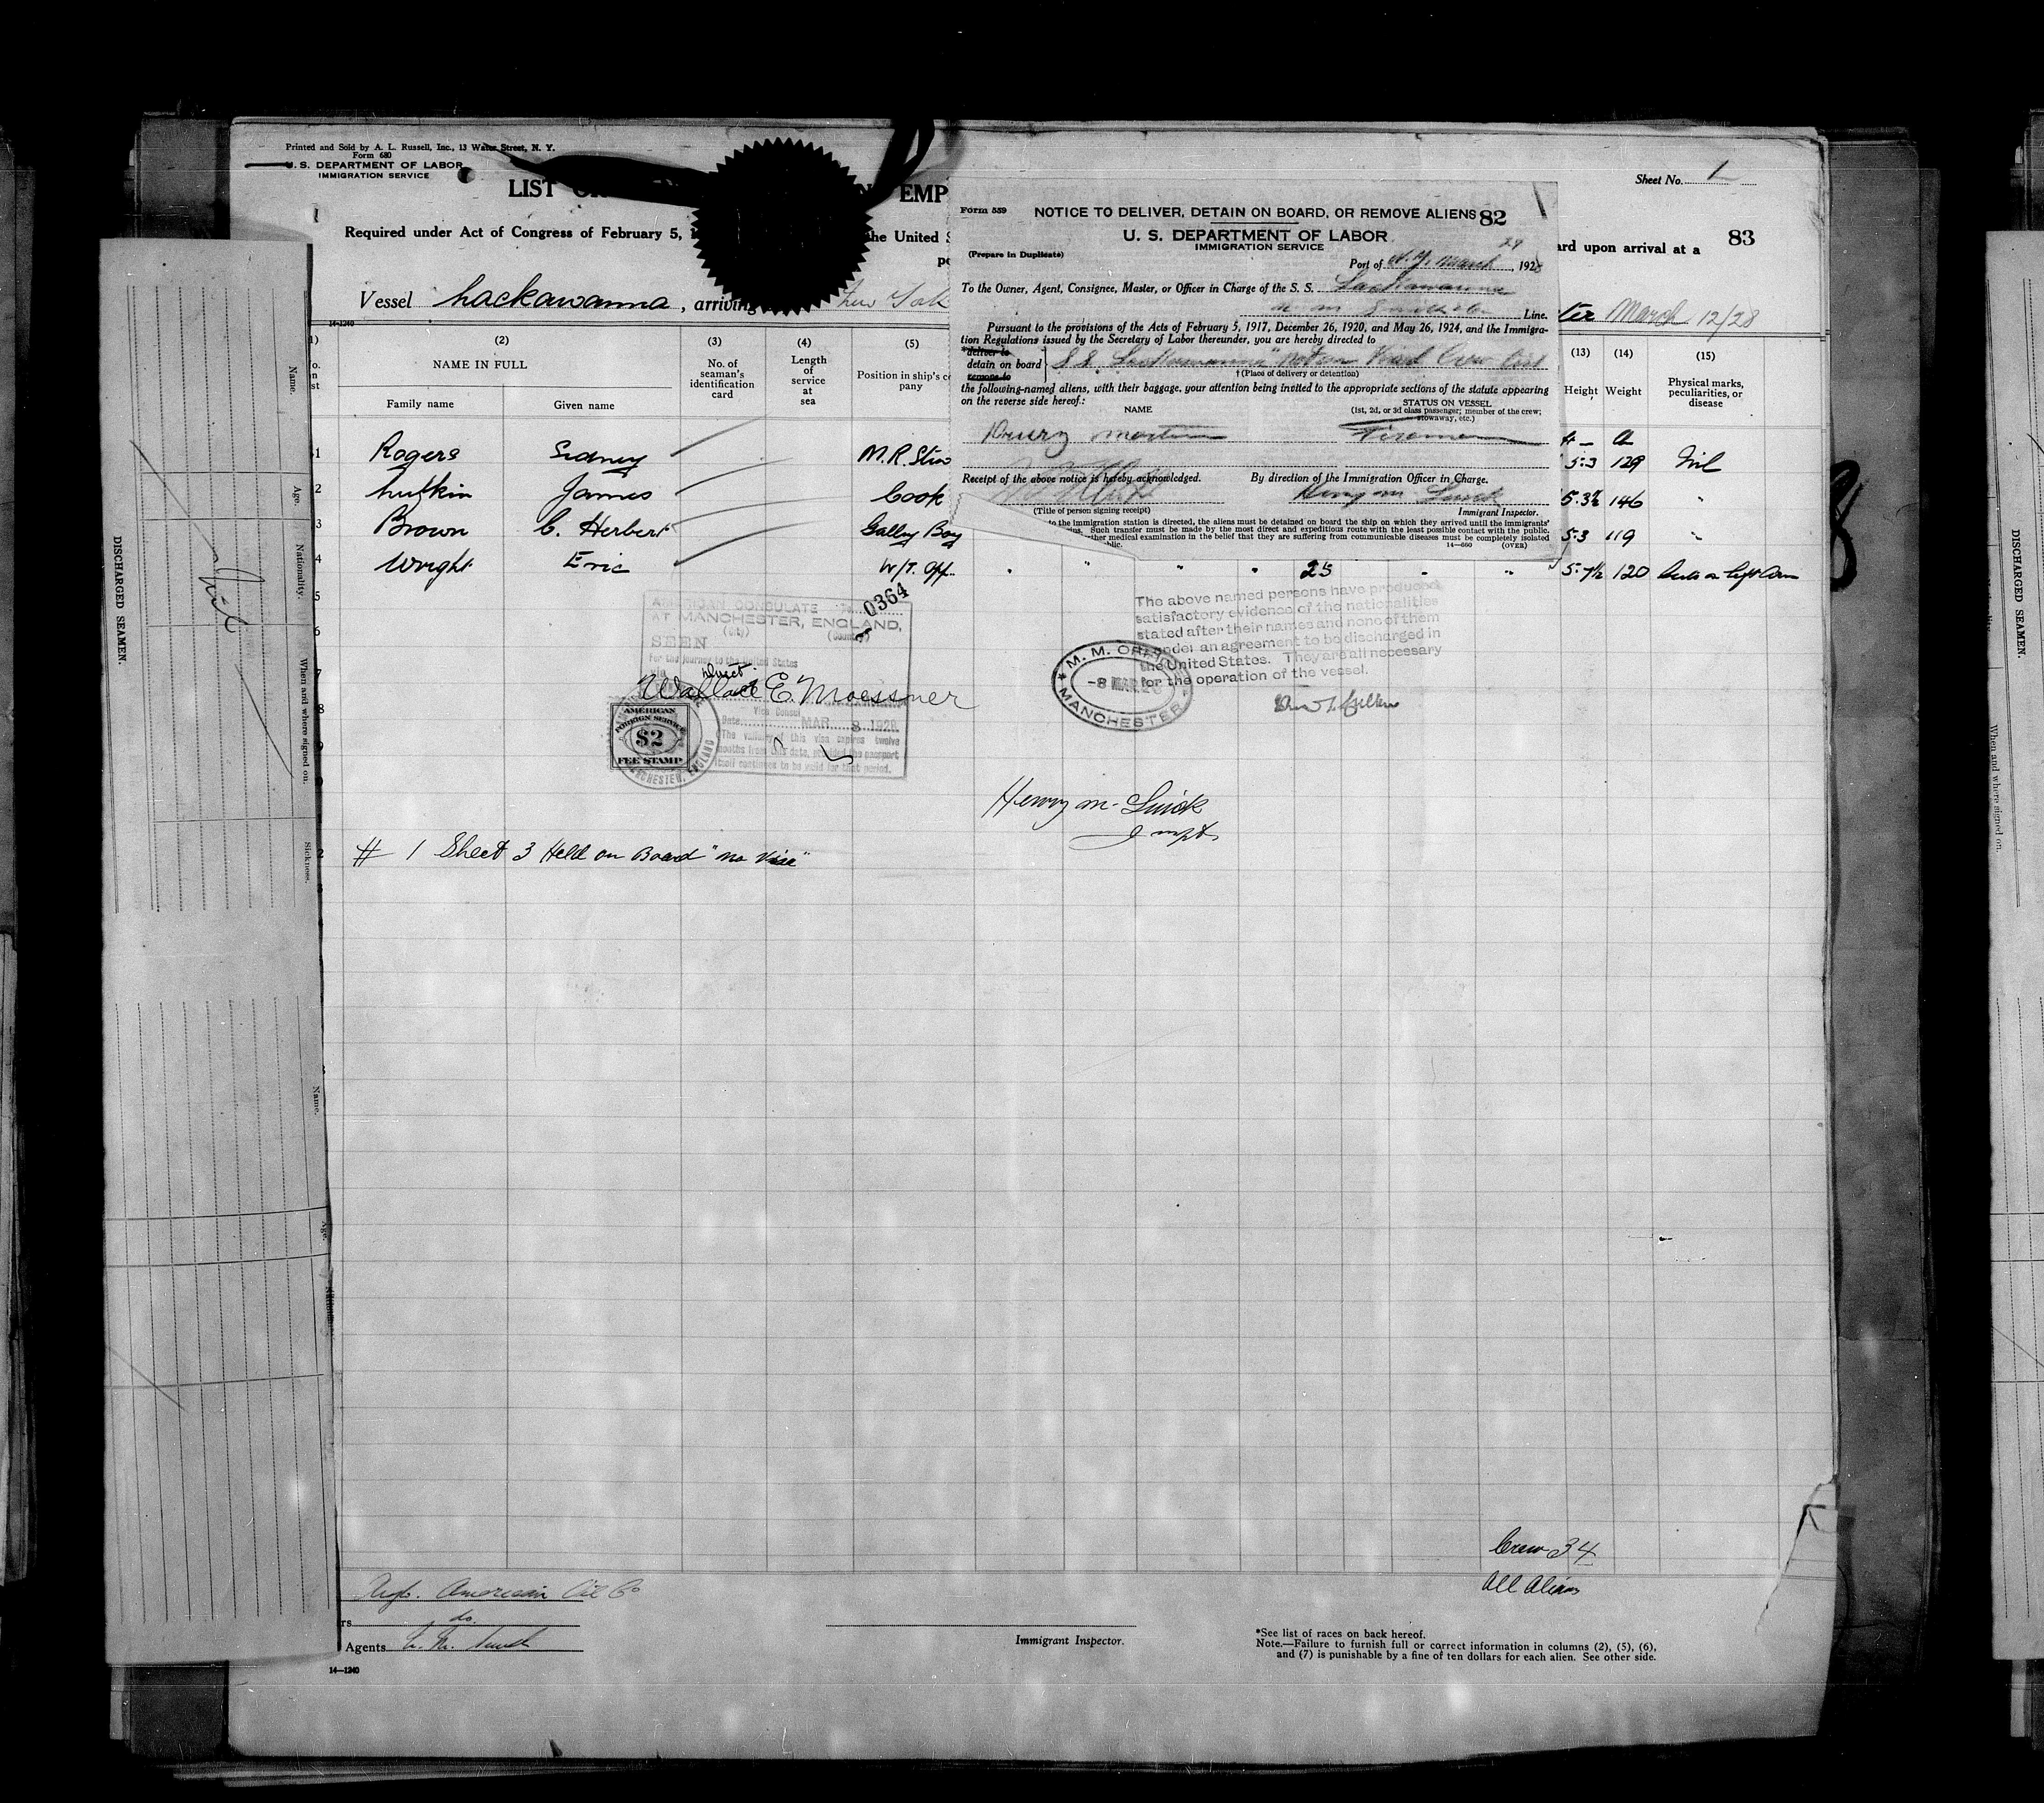 Printed and Sold by A. L. Russell, Inc., 13 Water Street, N. Y.
Form 680
U. S. DEPARTMENT OF LABOR
IMMIGRATION SERVICE
Sheet No. 
LIST O
EMP
83
Required under Act of Congress of February 5, 1
the United S
ard upon arrival at a
po
Vessel Lackawanna, arriving New York
ter March 12/28
14-1240
(2)
(3)
(4)
(5)
(13)
(14)
(15)
NAME IN FULL
No. of seaman's identification card
Length of service at sea
Position in ship's co
pany
Height
Weight
Physical marks, peculiarities, or disease
Family name
Given name
1 Rogers Sidney M.R. Stew 5.3 129 Nil
2 Lufkin James Cook 5.3½ 146 "
3 Brown C. Herbert Galley Boy 5.3 119 "
4 Wright Eric W/T. Op. " " " " 25 " " 5.7½ 120 Scar on Left Arm
5
6
7
8
9
Form 559
NOTICE TO DELIVER, DETAIN ON BOARD, OR REMOVE ALIENS 82
U. S. DEPARTMENT OF LABOR
IMMIGRATION SERVICE
(Prepare in Duplicate)
Port of N.Y. March 29, 1928
To the Owner, Agent, Consignee, Master, or Officer in Charge of the S. S. Lackawanna
Line.
Pursuant to the provisions of the Acts of February 5, 1917, December 26, 1920, and May 26, 1924, and the Immigra-
tion Regulations issued by the Secretary of Labor thereunder, you are hereby directed to
*deliver to
detain on board
remove to
S.S. Lackawanna "not on Visaed Crew List
† (Place of delivery or detention)
the following-named aliens, with their baggage, your attention being invited to the appropriate sections of the statute appearing
on the reverse side hereof:
NAME
STATUS ON VESSEL
(1st, 2d, or 3d class passenger; member of the crew;
stowaway, etc.)
Drury Martin Fireman
Receipt of the above notice is hereby acknowledged.
By direction of the Immigration Officer in Charge.
Henry M. Luick
(Title of person signing receipt)
Immigrant Inspector.
to the immigration station is directed, the aliens must be detained on board the ship on which they arrived until the immigrants'
ins. Such transfer must be made by the most direct and expeditious route with the least possible contact with the public.
ther medical examination in the belief that they are suffering from communicable diseases must be completely isolated
blic.
14-660
(OVER)
AMERICAN CONSULATE No. 0364
AT MANCHESTER, ENGLAND,
(City) (Country)
SEEN
For the journey to the United States
via Direct
Wallace E. Moessner
Vice Consul
Date MAR 8 1928
The validity of this visa expires twelve
months from this date, provided the passport
itself continues to be valid for that period.
AMERICAN
FOREIGN SERVICE
$2
FEE STAMP
MANCHESTER, ENGLAND
The above named persons have produced
satisfactory evidence of the nationalities
stated after their names and none of them
under an agreement to be discharged in
the United States. They are all necessary
for the operation of the vessel.
M. M. OFFICE
-8 MAR.28
MANCHESTER
Henry M. Luick
Inspt.
# 1 Sheet 3 Held on Board "no Visa"
Crew 34
All Aliens
Anglo. American Oil Co
rs do.
Agents
Immigrant Inspector.
*See list of races on back hereof.
Note.—Failure to furnish full or correct information in columns (2), (5), (6),
and (7) is punishable by a fine of ten dollars for each alien. See other side.
14—1240
DISCHARGED SEAMEN.
Name.
Age.
Nationality.
When and where signed on.
Sickness.
Nil
Name.
Age.
DISCHARGED SEAMEN.
When and where signed on.